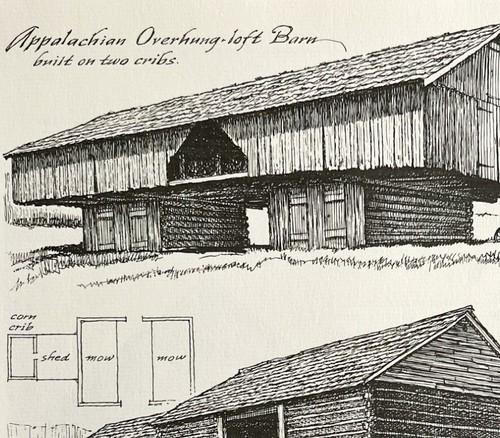 Appalachian Overhung-loft Barn
built on two cribs.
corn
crib
shed
mow
mow